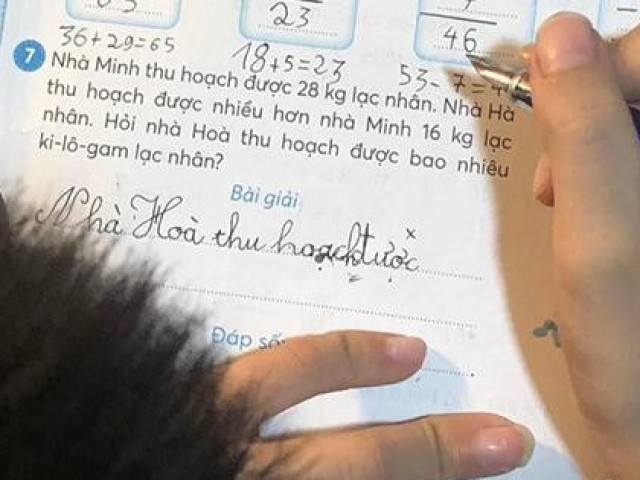 23
46
36+29=65
18+5=23
53-7=4
7
Nhà Minh thu hoạch được 28 kg lạc nhân. Nhà Hà
thu hoạch được nhiều hơn nhà Minh 16 kg lạc
nhân. Hỏi nhà Hoà thu hoạch được bao nhiêu
ki-lô-gam lạc nhân?
Bài giải
Nhà Hoà thu hoạch
Đáp số: